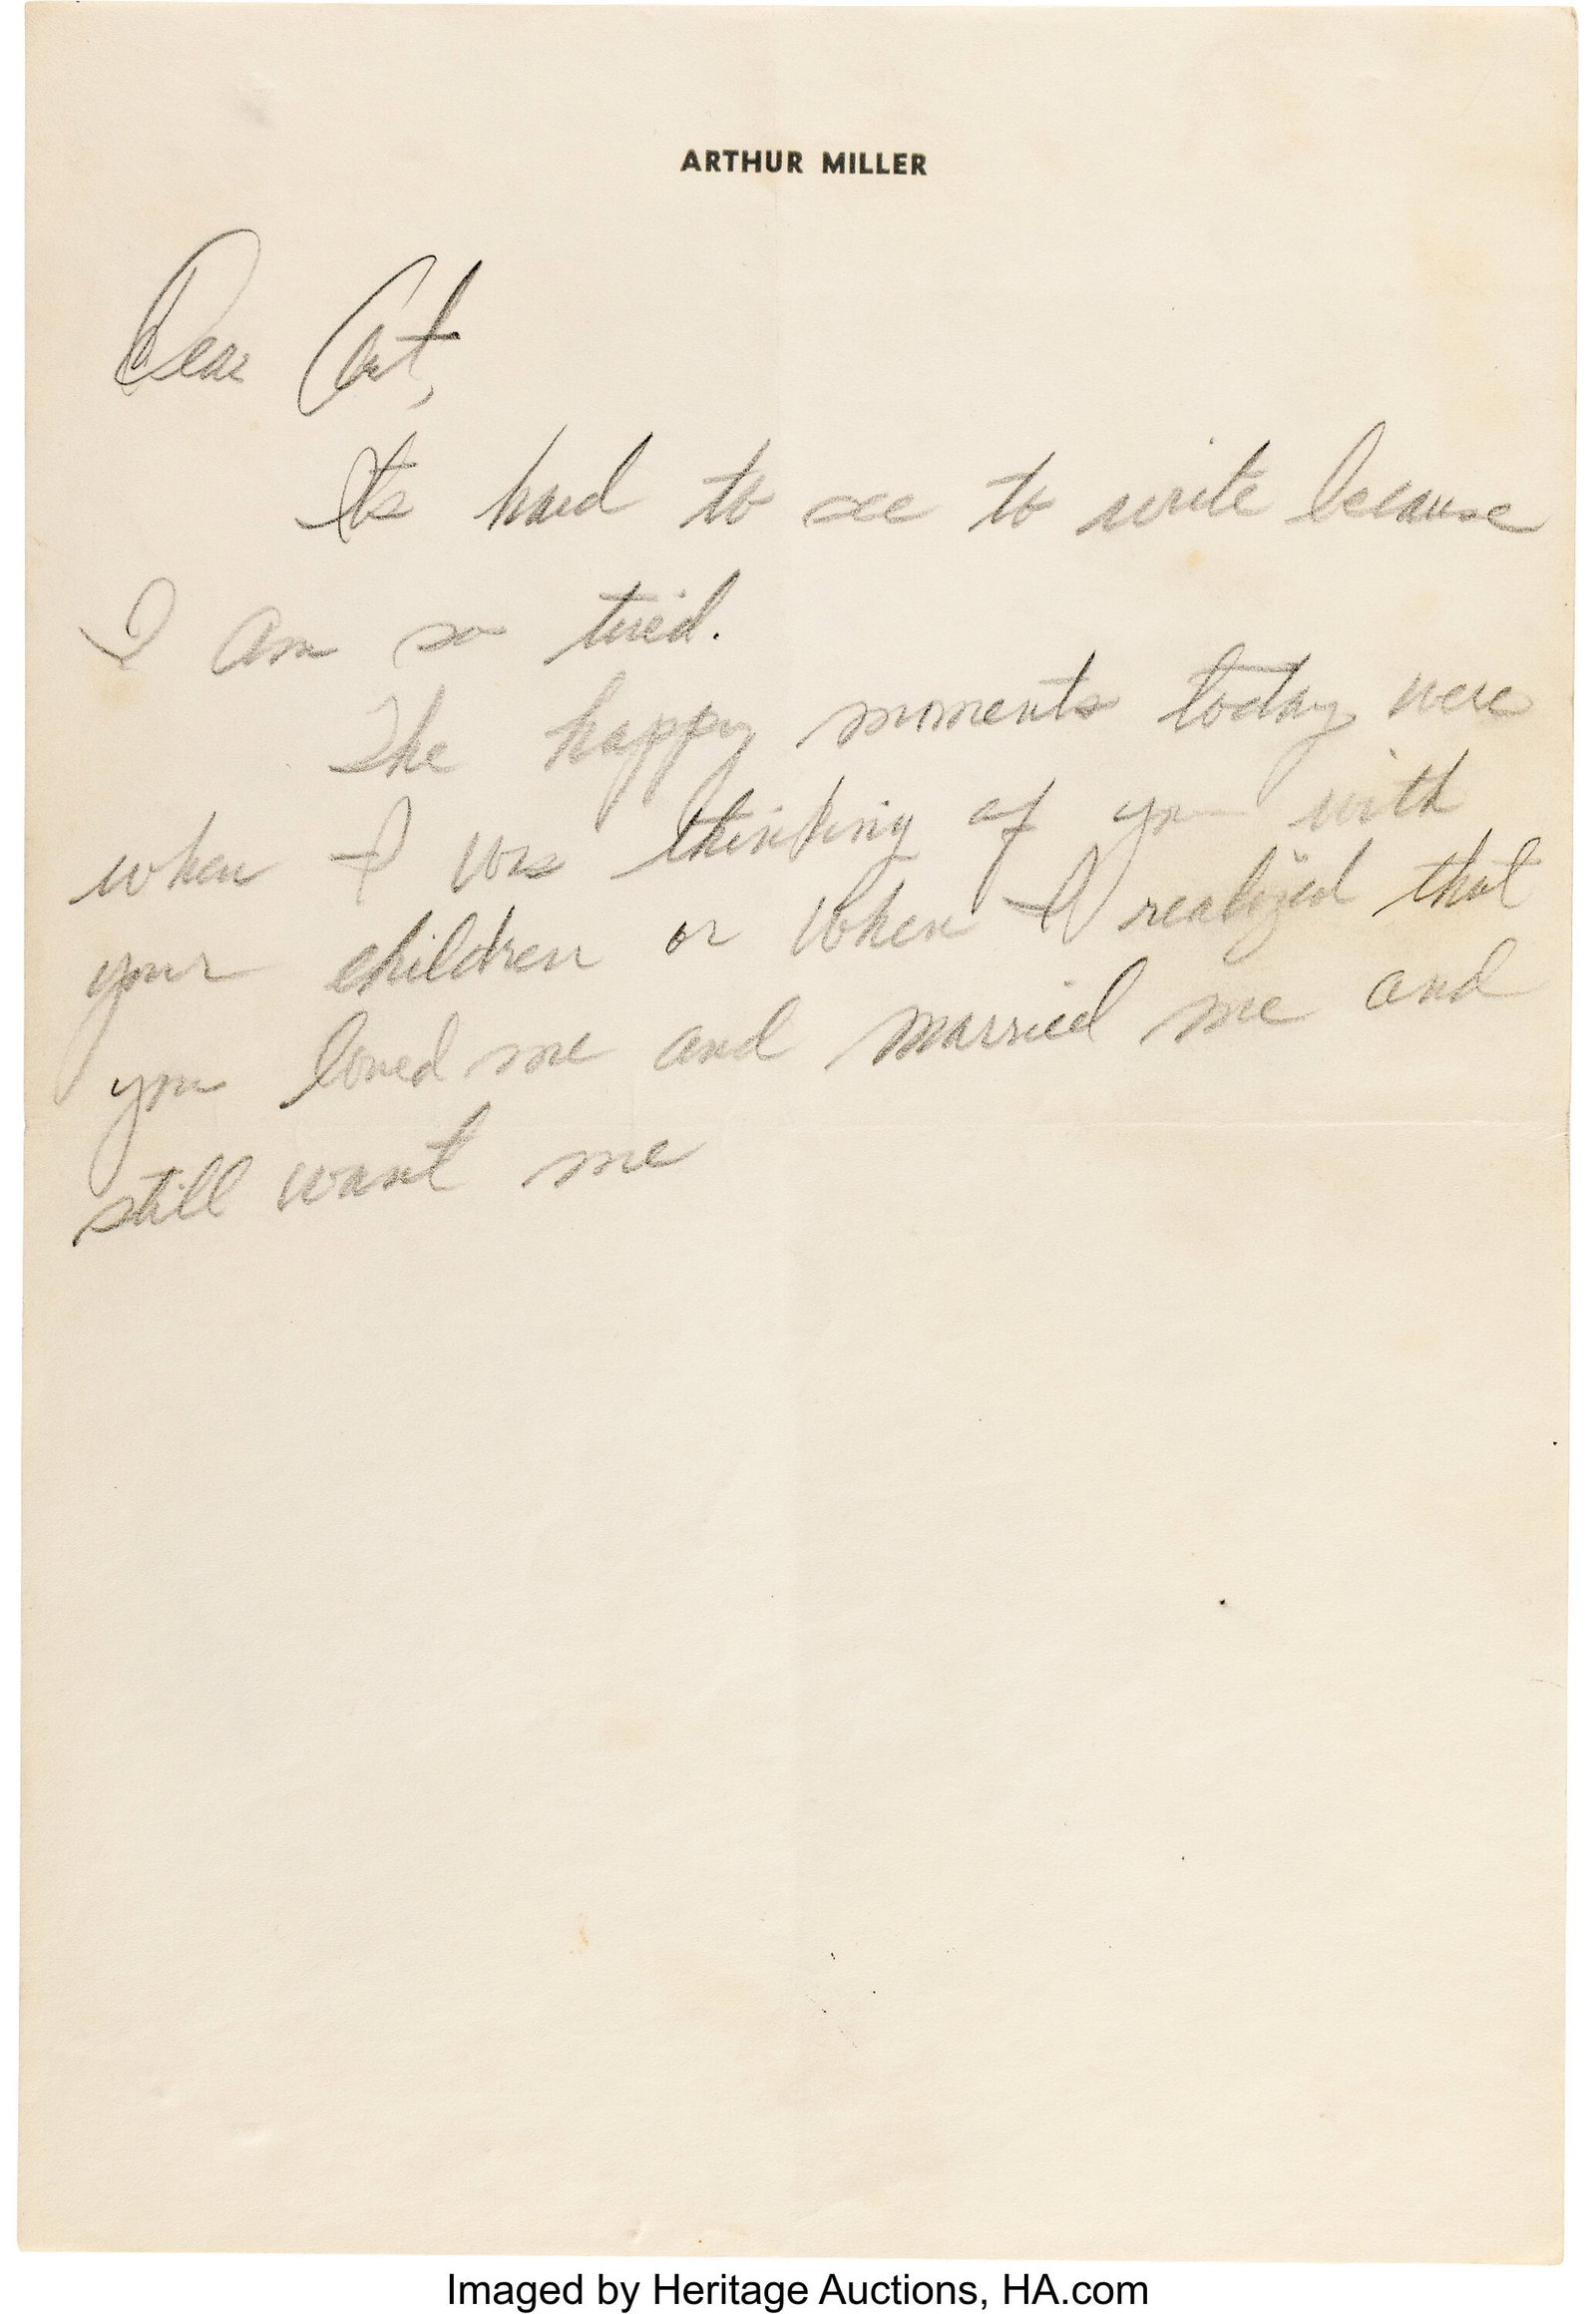 ARTHUR MILLER
Dear Art,
Its hard to see to write because
I am so tired.
The happy moments today were
when I was thinking of you with
your children or when I realized that
you loved me and married me and
still want me
Imaged by Heritage Auctions, HA.com